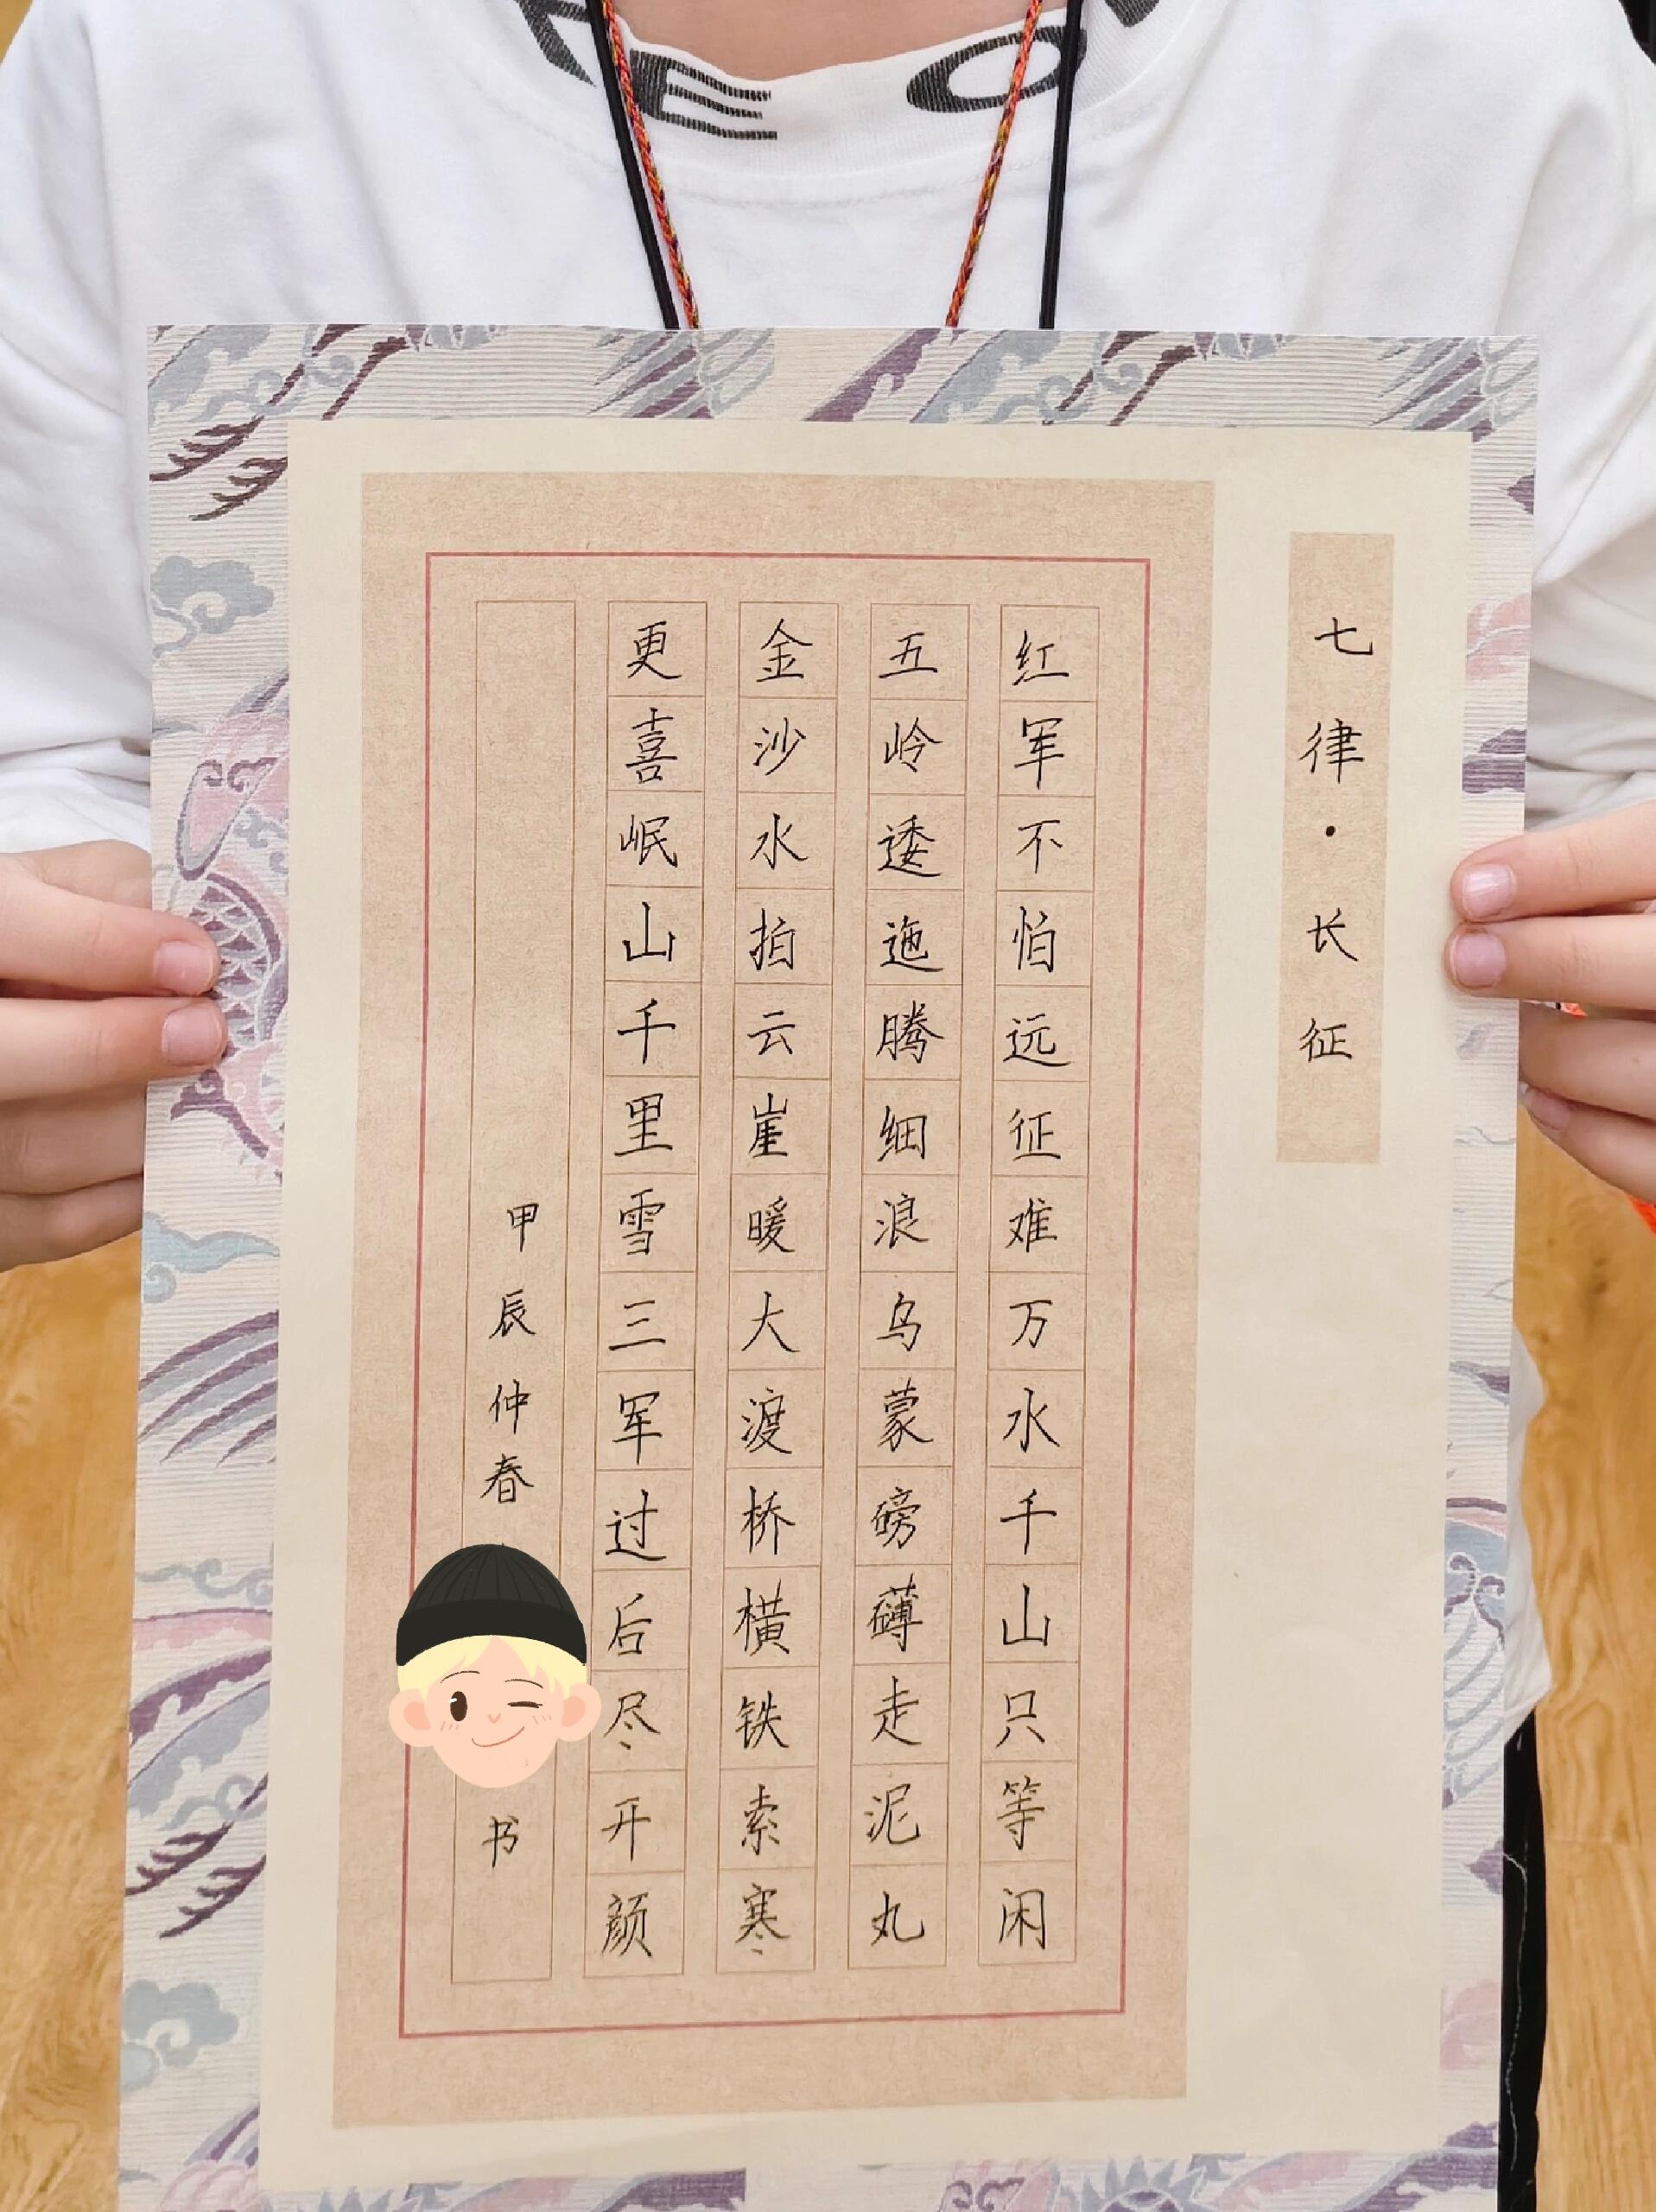 七律·长征
红军不怕远征难万水千山只等闲
五岭逶迤腾细浪乌蒙磅礴走泥丸
金沙水拍云崖暖大渡桥横铁索寒
更喜岷山千里雪三军过后尽开颜
甲辰仲春
书